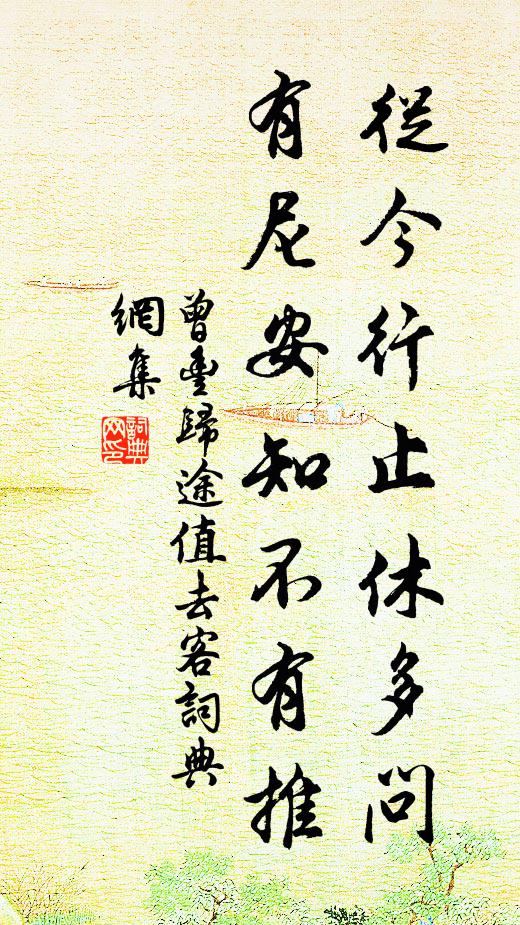 從今行止休多問
有尼安知不有推
曾豐歸途值去客詞典
網集
詞典
网印